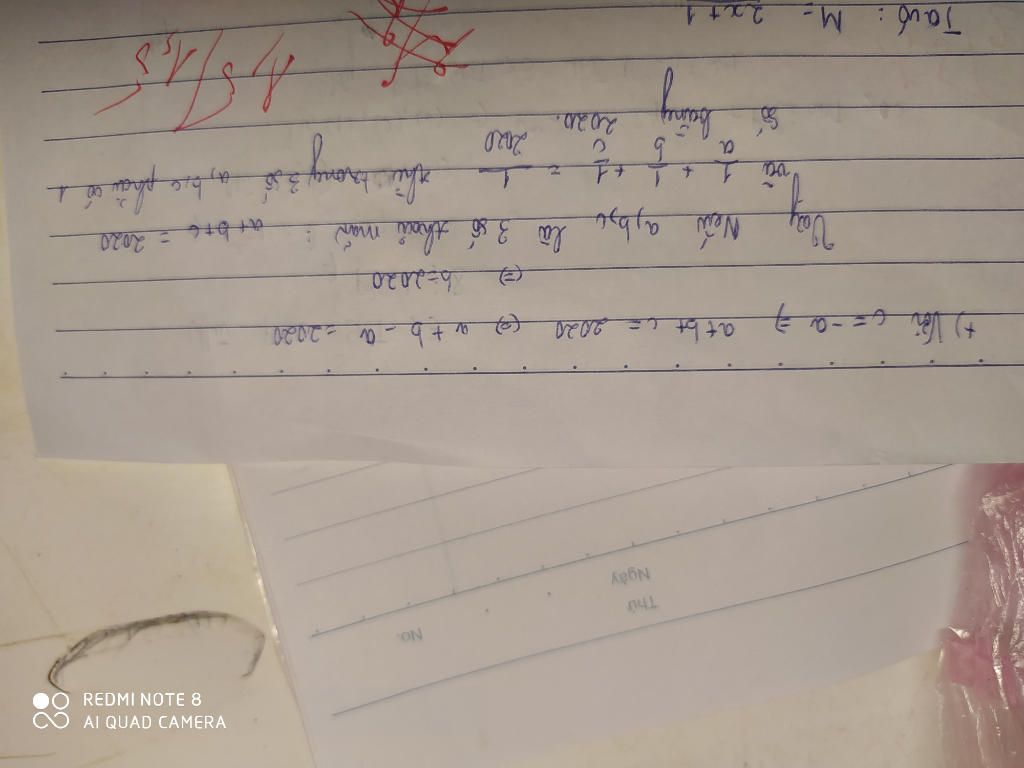 +) Với c = -a => a+b+c = 2020 (=) a + b - a = 2020
(=) b=2020
Vậy Nếu a,b,c là 3 số thoả mãn : a+b+c = 2020
và 1/a + 1/b + 1/c = 1/2020 thì trong 3 số a,b,c phải có 1
số bằng 2020.
Ta có : M = 2x+1
No.
Thứ
Ngày
REDMI NOTE 8
AI QUAD CAMERA